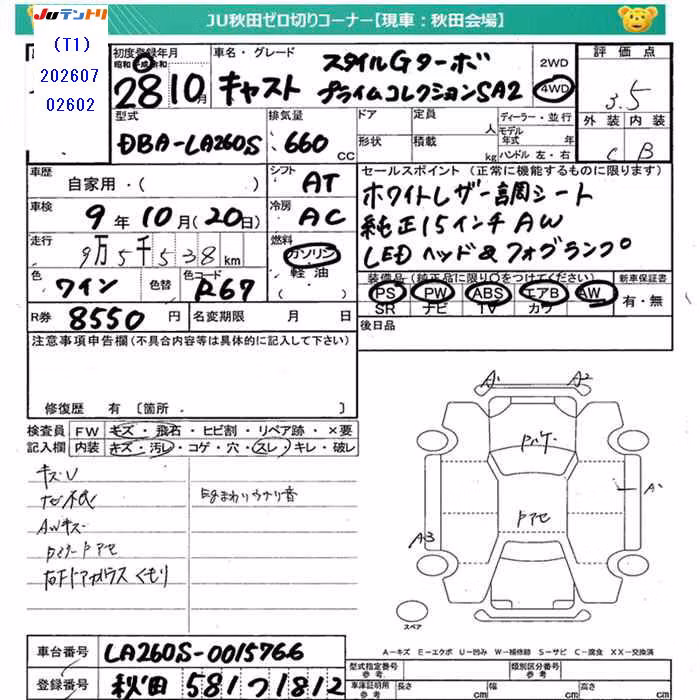 JUテントリ
JU秋田ゼロ切りコーナー【現車：秋田会場】
(T1)
202607
02602
初度登録年月
昭和 平成 令和
28 10月
車名・グレード
キャスト
スタイルGターボ
プライムコレクションSA2
2WD
4WD
評価点
3.5
外装 内装
C B
型式
DBA-LA260S
排気量
660 CC
ドア
定員
人
形状
積載
kg
ディーラー・並行
モデル年式 年
ハンドル 左・右
車歴
自家用・(
)
シフト
AT
車検
9年10月(20日)
冷房
AC
走行
9万5千538km
燃料
ガソリン
軽油
( )
色
ワイン
色替
色コード
R67
R券
8550円
名変期限 月 日
セールスポイント（正常に機能するものに限ります）
ホワイトレザー調シート
純正15インチAW
LEDヘッド&フォグランプ
装備品（純正品に限り○をつけてください）
PS PW ABS エアB AW
SR ナビ TV カワ
新車保証書
有・無
後日品
注意事項申告欄(不具合内容等は具体的に記入して下さい)
修復歴 有〔箇所．〕
検査員
記入欄
FW キズ・飛石・ヒビ割・リペア跡・×要
内装 キズ・汚レ・コゲ・穴・スレ・キレ・破レ
キズU
AWキズ
Egまわりウナリ音
A1 A2
A3
スペア
A－キズ E－エクボ U－凹み W－補修跡 S－サビ C－腐食 XX－交換済
車台番号
LA260S-0015766
登録番号
秋田 581 つ 1812
型式指定番号
類別区分番号
車庫証明用参考
長さ cm 幅 cm 高さ cm